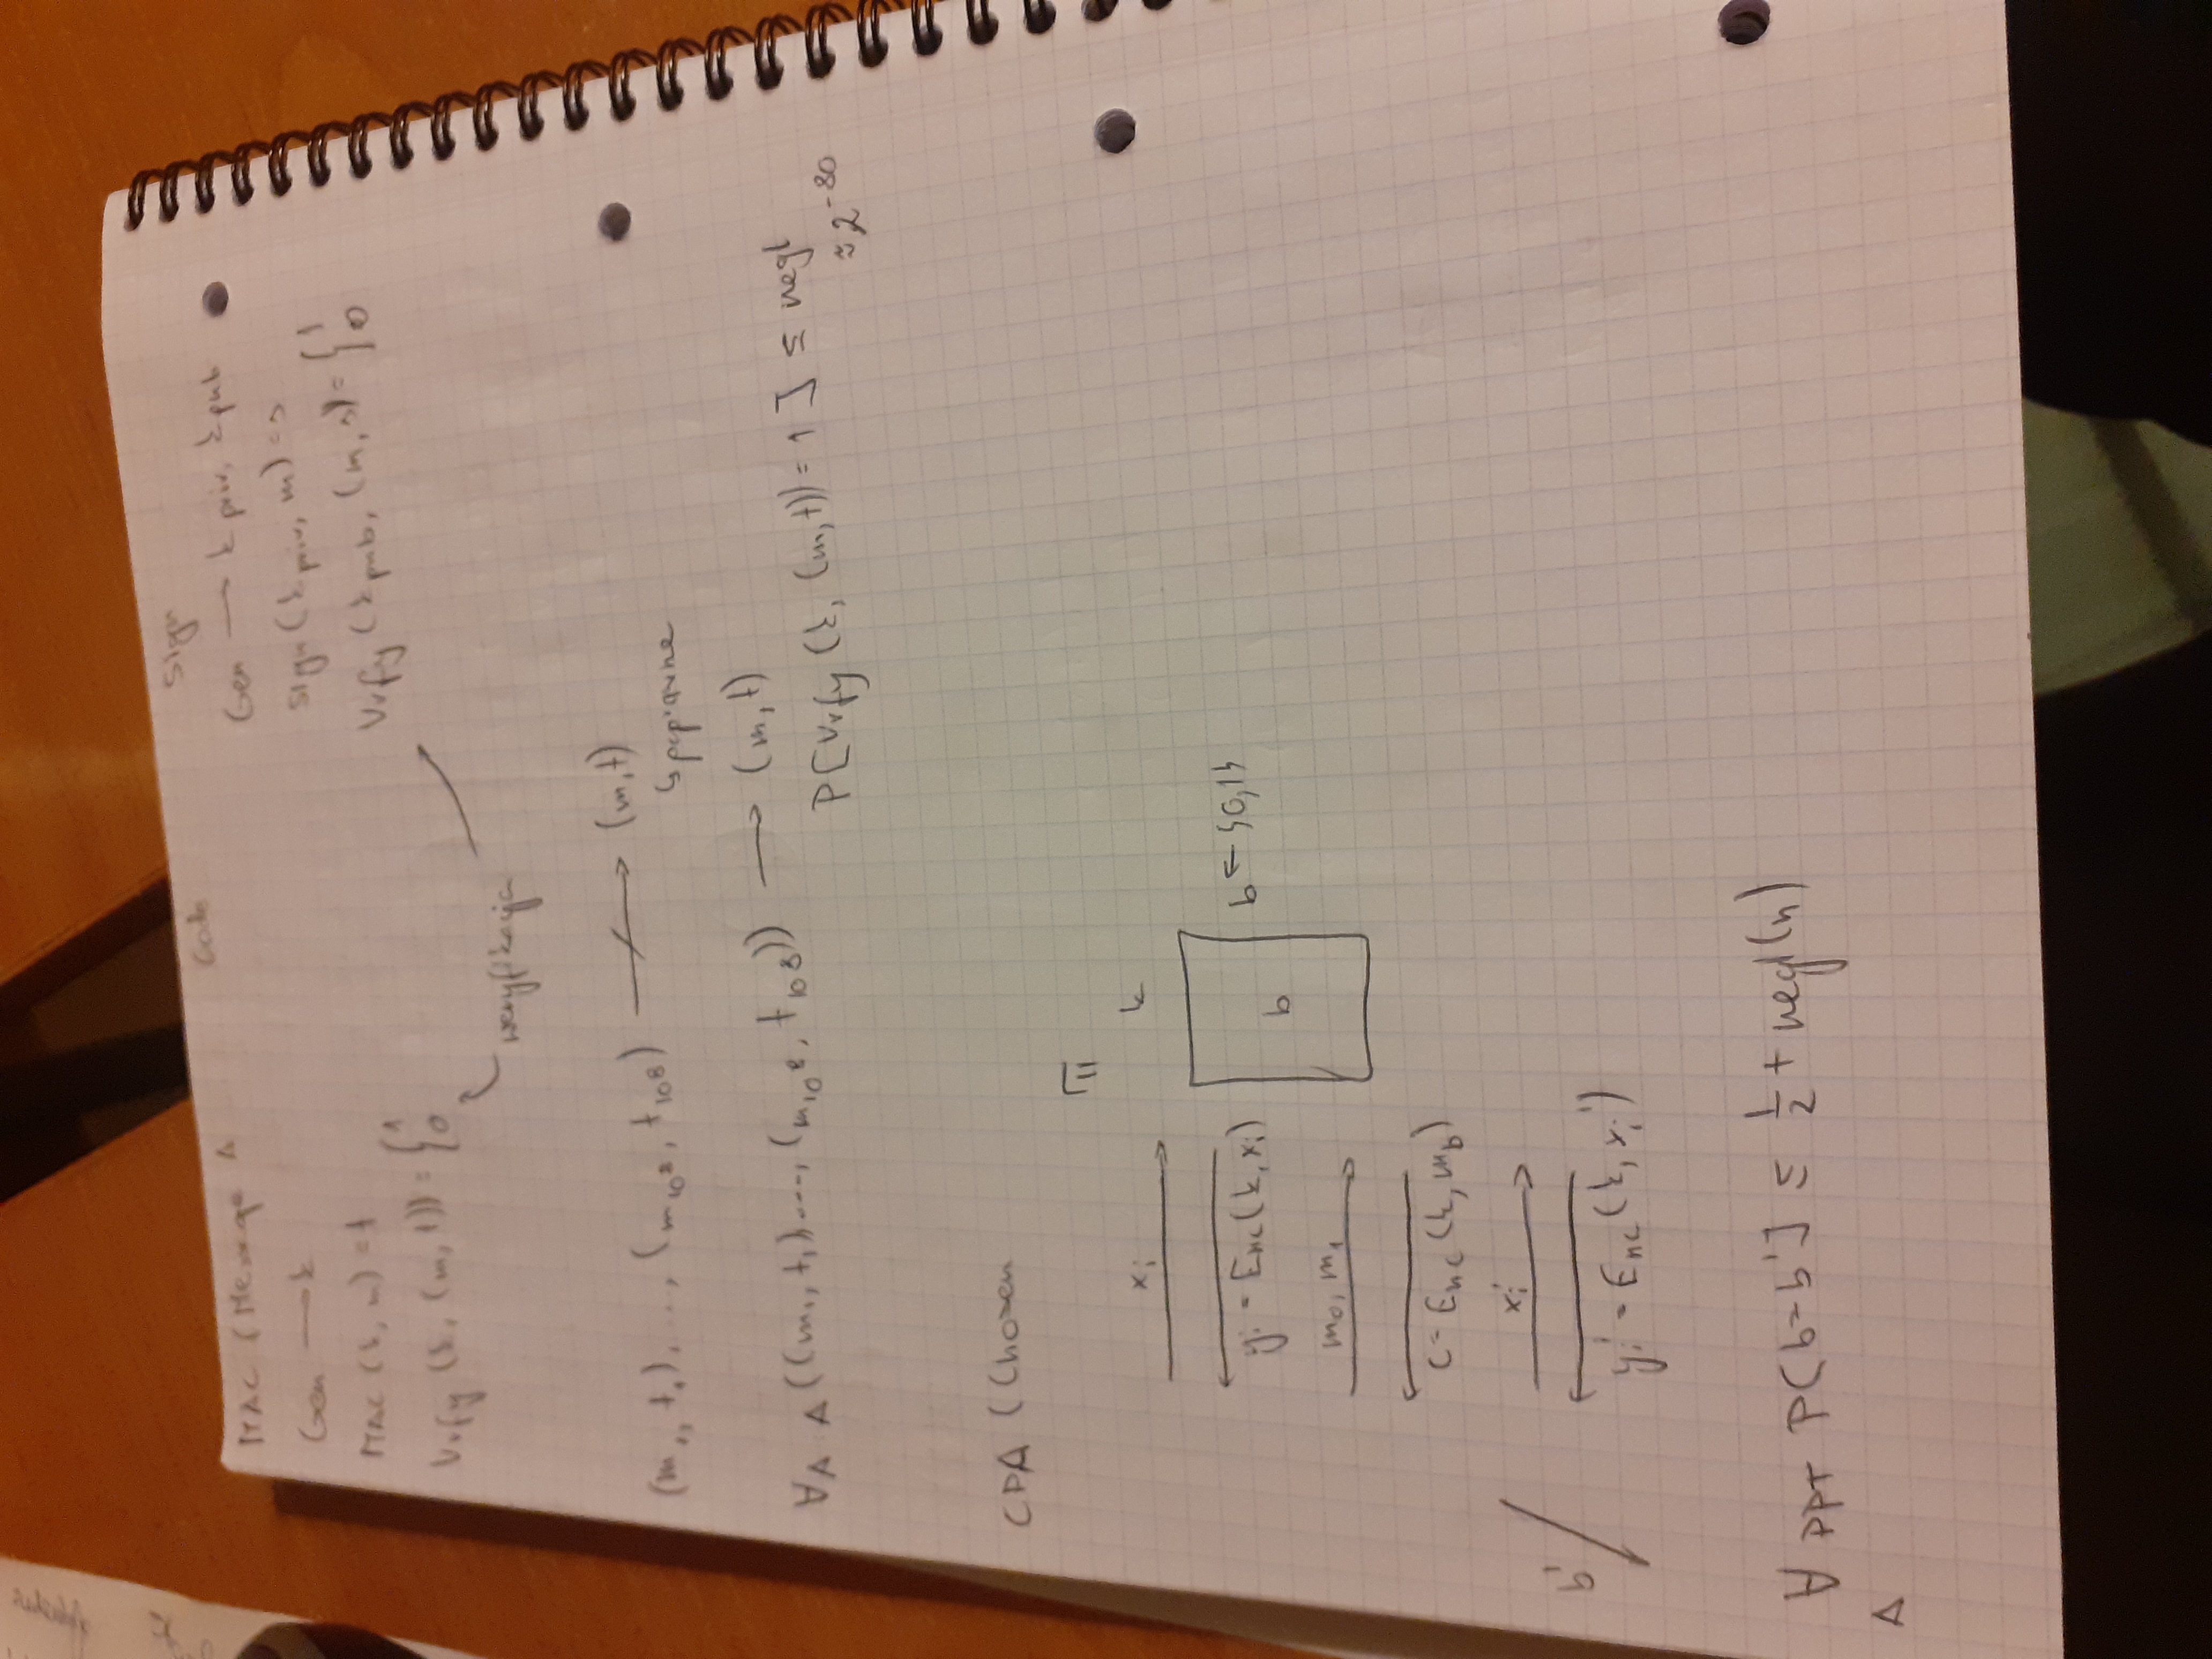 MAC (Message A Code
Gen → k
MAC (k, m) = t
Vrfy (k, (m, t)) = { 1 0
Sign
Gen → k priv, k pub
Sign (k priv, m) = s
Vrfy (k pub, (m, s) = { 1 0
weryfikacja
(m₁, t₁), ..., (m₁₀⁸, t₁₀⁸) ↛ (m, t)
↳ poprawne
∀A A((m₁, t₁), ..., (m₁₀⁸, t₁₀⁸)) → (m, t)
P[Vrfy (k, (m, t)) = 1] ≤ negl
≈ 2⁻⁸⁰
CPA (Chosen
Π
k
xᵢ
yᵢ = Enc(k, xᵢ)
b
b ← {0,1}
m₀, m₁
c = Enc (k, m_b)
xᵢ'
yᵢ' = Enc (k, xᵢ')
b'
∀ PPT P[b=b'] ≤ ½ + negl(n)
A